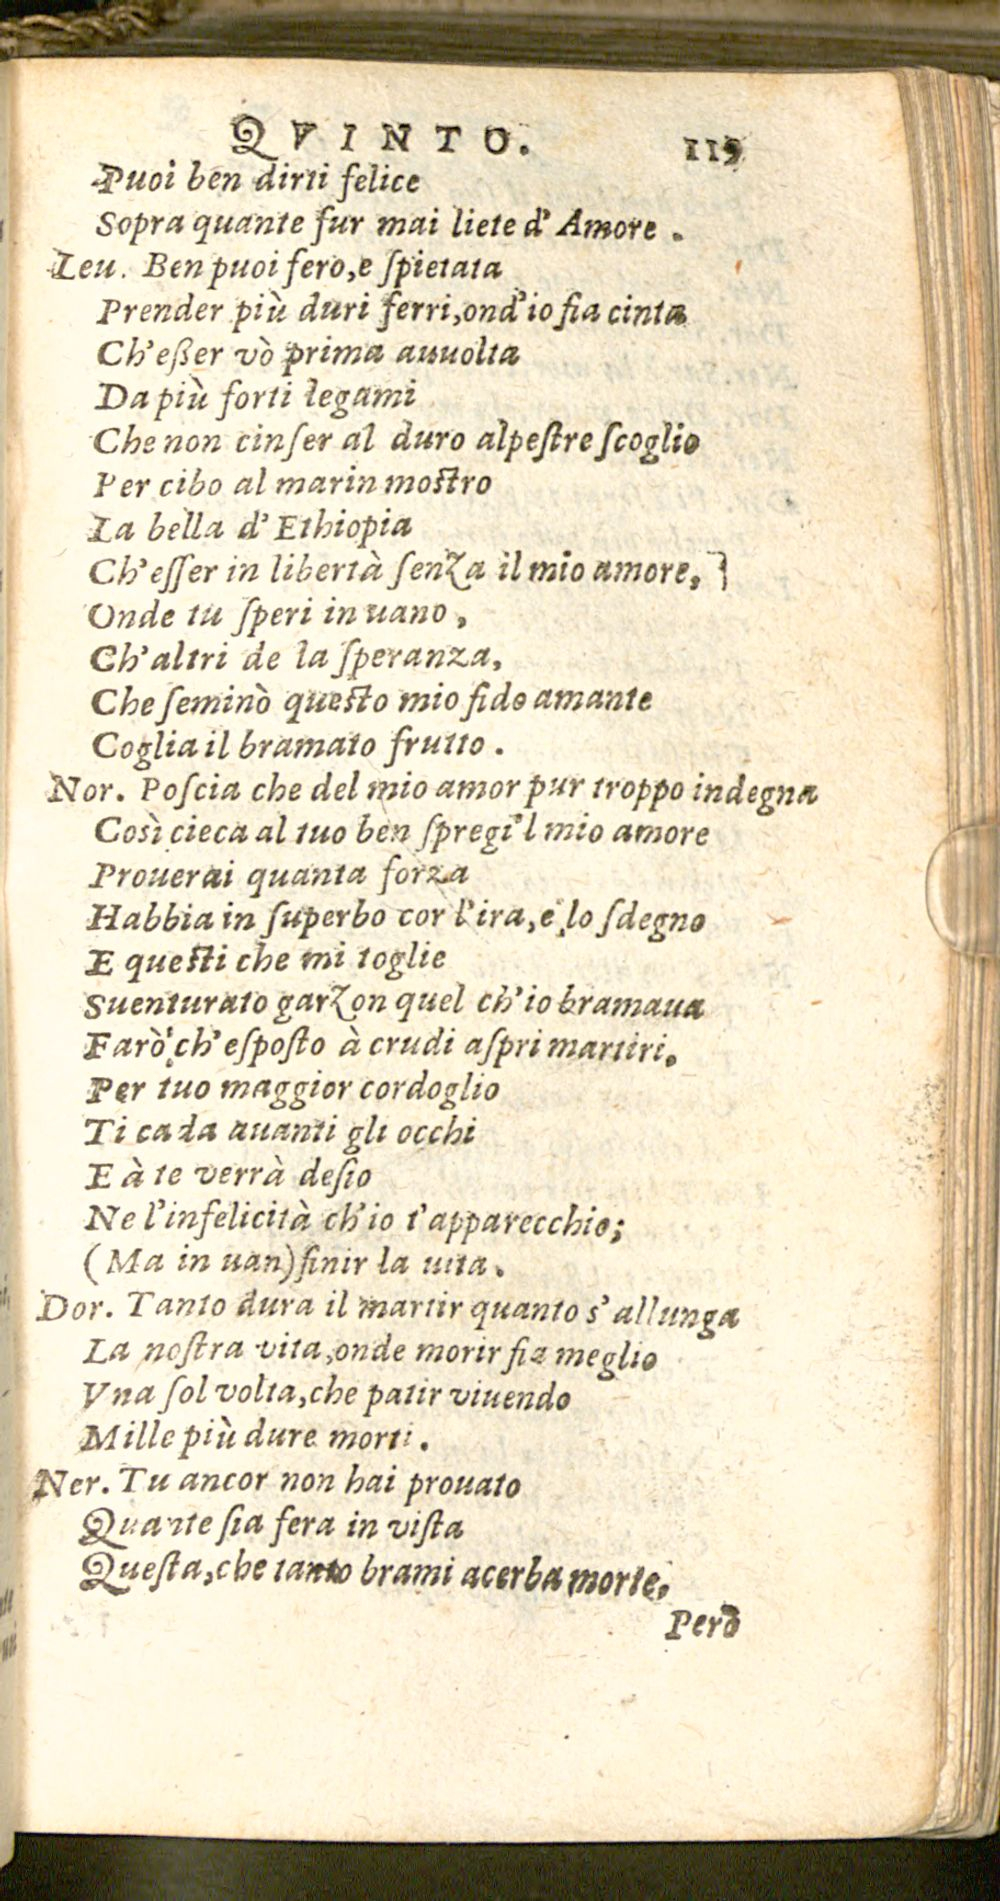 QVINTO. 119
Puoi ben dirti felice
Sopra quante fur mai liete d' Amore .
Leu. Ben puoi fero,e ſpietata
Prender più duri ferri,ond'io fia cinta
Ch'eßer vò prima auuolta
Da più forti legami
Che non cinſer al duro alpeſtre ſcoglio
Per cibo al marin moſtro
La bella d' Ethiopia
Ch'eſſer in libertà ſenza il mio amore,
Onde tu ſperi in uano ,
Ch'altri de la ſperanza,
Che ſeminò queſto mio fido amante
Coglia il bramato frutto .
Nor. Poſcia che del mio amor pur troppo indegna
Così cieca al tuo ben ſpregi'l mio amore
Prouerai quanta forza
Habbia in ſuperbo cor l'ira,e lo ſdegno
E queſti che mi toglie
Suenturato garzon quel ch'io bramaua
Farò ch'eſpoſto à crudi aſpri martiri.
Per tuo maggior cordoglio
Ti cada auanti gli occhi
E à te verrà deſio
Ne l'infelicità ch'io t'apparecchio;
(Ma in uan) finir la uita .
Dor. Tanto dura il martir quanto s'allunga
La noſtra vita,onde morir fia meglio
Vna ſol volta,che patir viuendo
Mille più dure morti .
Ner. Tu ancor non hai prouato
Quante ſia fera in viſta
Queſta,che tanto brami acerba morte,
Però